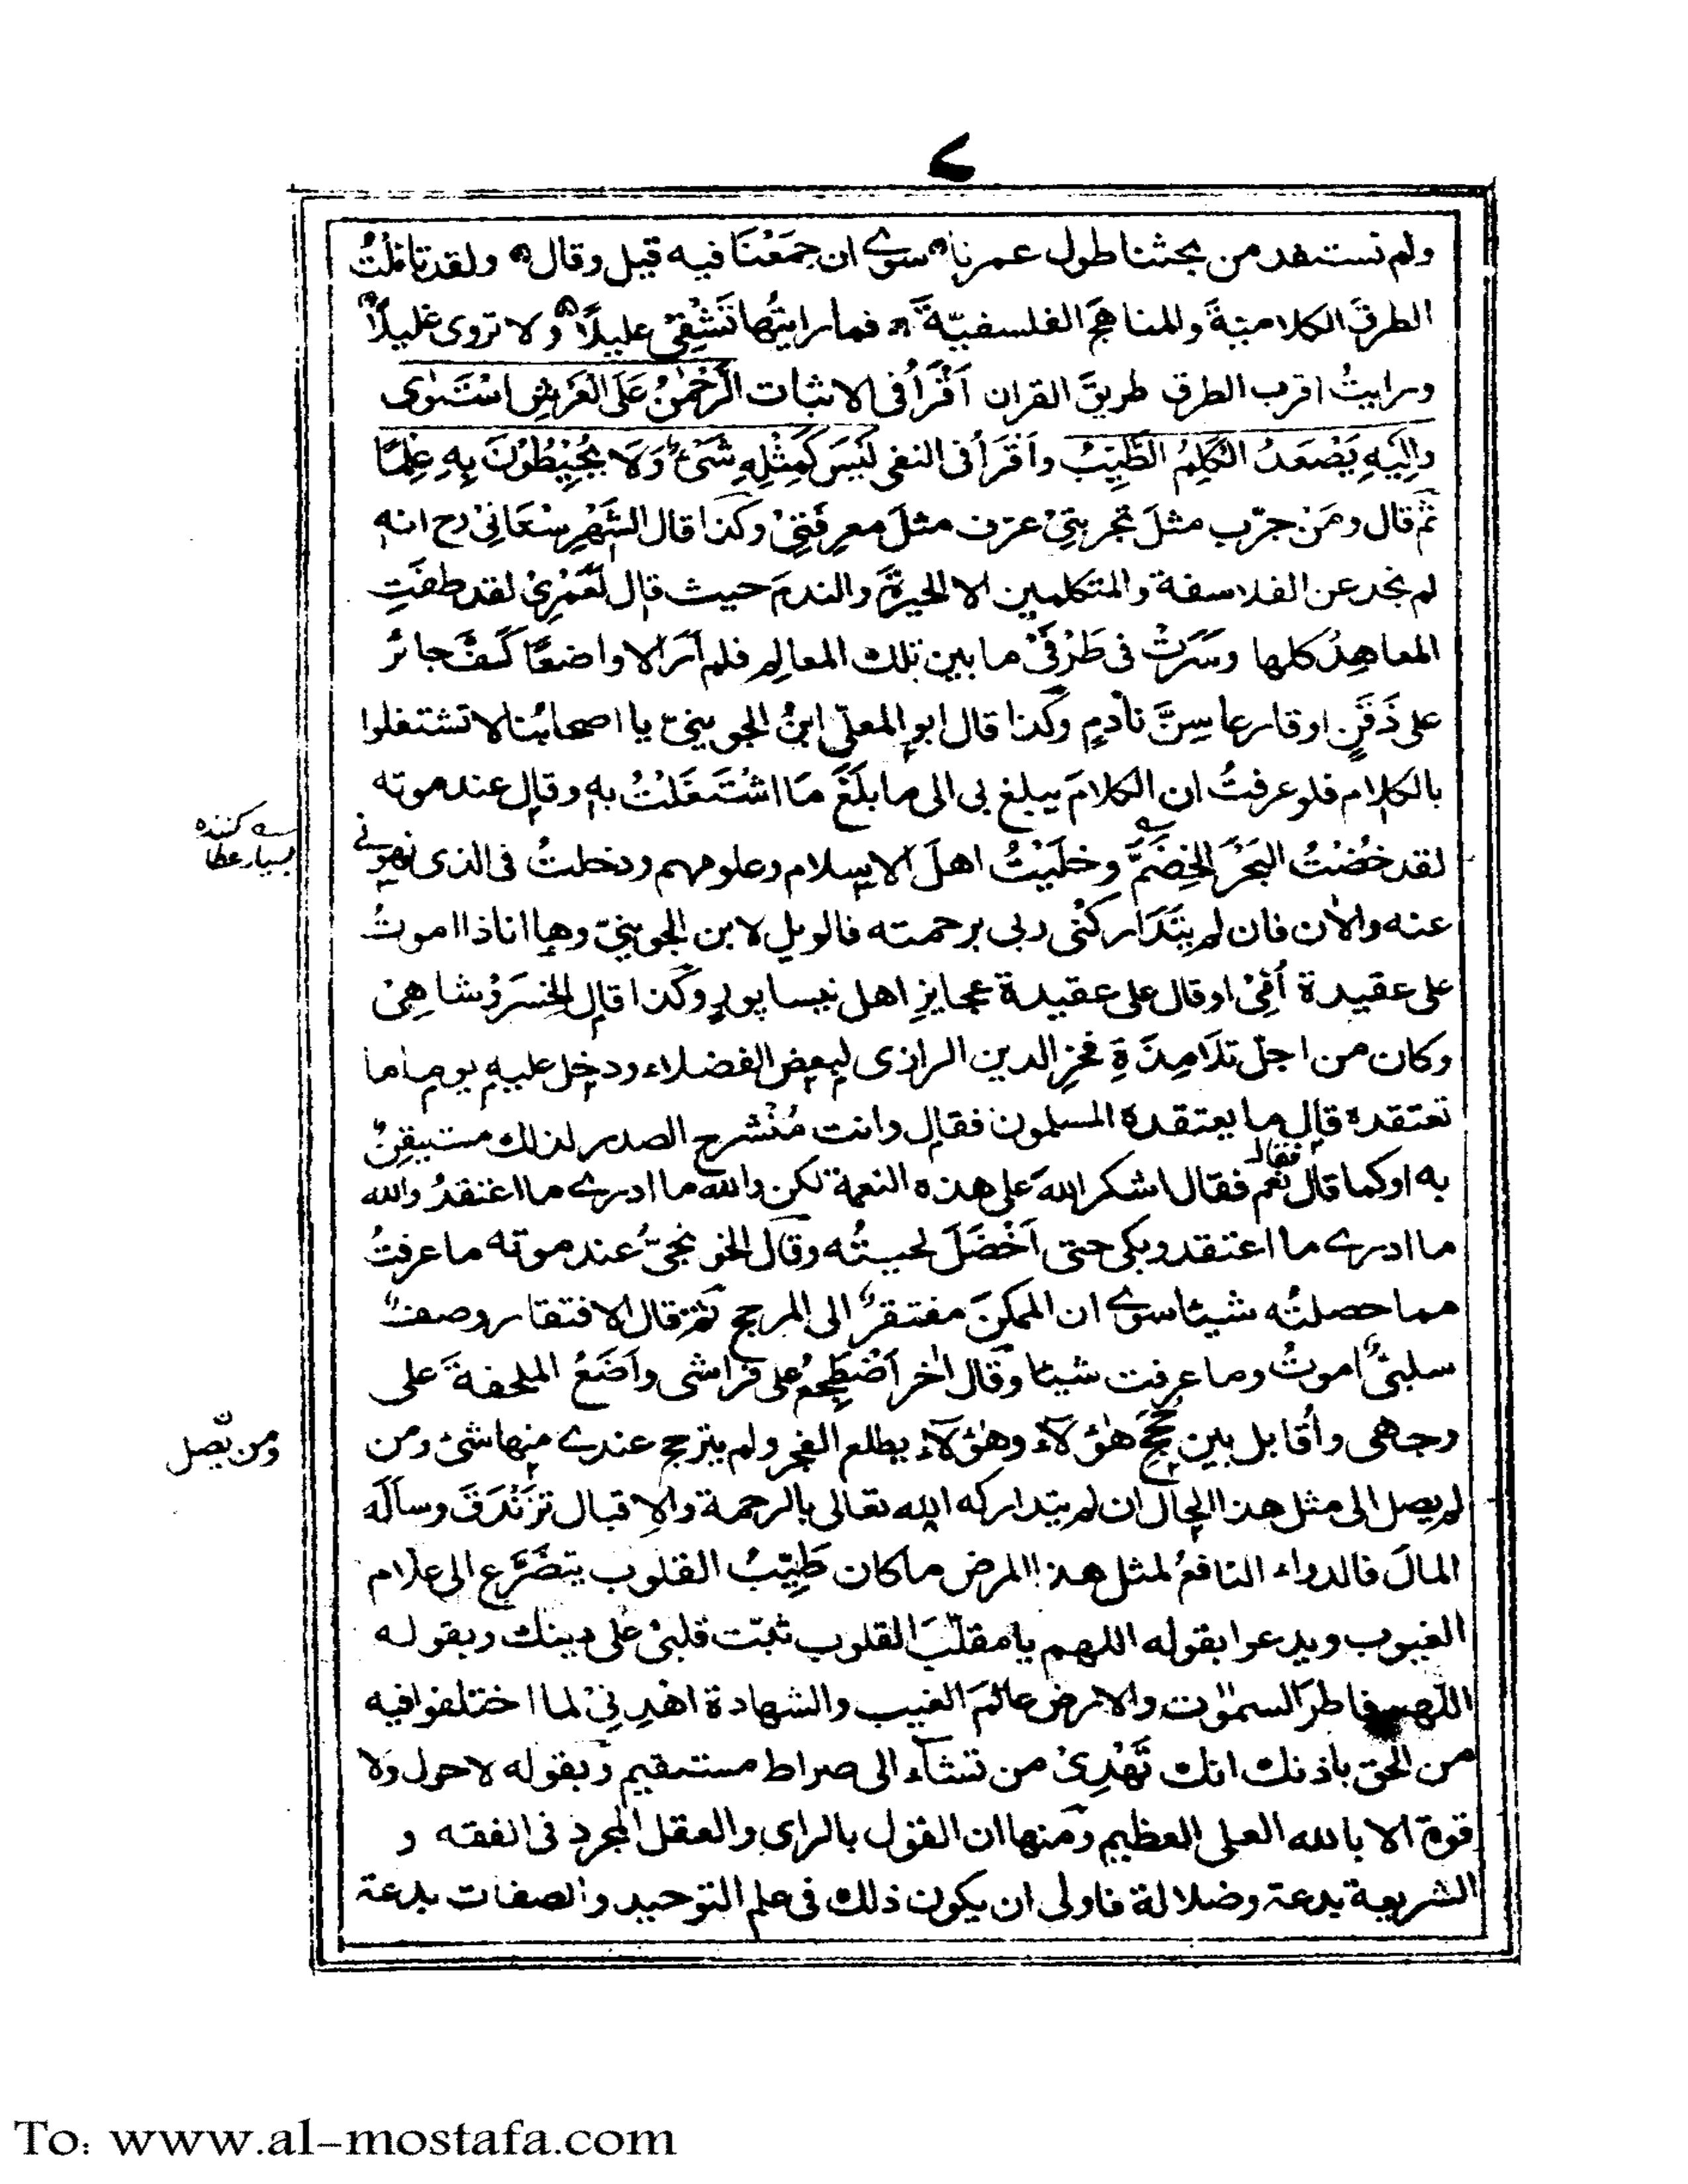 ولم نستفد من بحثنا طول عمرنا سوى ان جمَعْنَا فيه قيل وقال ولقد تاملتُ
الطرقَ الكلاميّةَ والمناهجَ الفلسفيّة فما رايتُها تَشْفِىْ عليلًا ولا تروى غليلًا
ورايتُ اقرب الطرق طريقَ القران اَقْرَأُ فى الاثبات اَلرَّحْمٰنُ عَلَى الْعَرْشِ اسْتَوٰى
واِلَيْهِ يَصْعَدُ الْكَلِمُ الطَّيِّبُ واَقْرَأُ فى النفى لَيْسَ كَمِثْلِهٖ شَىْءٌ وَلَا يُحِيْطُوْنَ بِهٖ عِلْمًا
ثم قال ومَنْ جرّب مثلَ تجربتِىْ عرف مثلَ معرِفَتِىْ وكذا قال الشَّهْرِسْتَانِىْ رح انه
لم يجد عن الفلاسفة والمتكلمين الا الحيرةَ والندمَ حيث قال لَعَمْرِىْ لقد طفتُ
المعاهِدَ كلها وسَرَّتْ فى طَرْفَىْ ما بين تلك المعالِمِ فلم اَرَ الا واضعًا كَفَّ حائر
على ذَقَنٍ او قارعا سِنَّ نادمٍ وكذا قال ابو المعلى ابنُ الجوينىّ يا اصحابنا لا تشتغلوا
بالكلام فلو عرفتُ ان الكلامَ يبلغ بى الى ما بلَغَ مَا اشْتَغَلْتُ به وقال عند موته
لقد خُضْتُ البَحْرَ الخِضَمَّ وخلّيتُ اهلَ الاسلام وعلومهم ودخلتُ فى الذى نهونى
بسيار عطا كننده
عنه والاٰن فان لم يَتَدَاركْنى ربى برحمته فالويل لابن الجوينىّ وها انا ذا اموتُ
على عقيدة اُمِّىْ او قال على عقيدة عجايزِ اهل نيسابور وكذا قال الخسرَوْشاهِىْ
وكان من اجلّ تلَامِذَةِ فخرِ الدين الرازى لبعض الفضلاء ودخل عليه يوما ما
تعتقده قال ما يعتقده المسلمون فقال وانت مُنْشرح الصدر لذلك مستيقنٌ
به او كما قال فقال نعم فقال اشكر اللهَ على هذه النعمة لكن والله ما ادرى ما اعتقدُ والله
ما ادرى ما اعتقد وبكى حتى اَخْضَلَ لحيتُه وقال الخونجىُّ عند موته ما عرفتُ
مما حصلتُه شيئا سوى ان الممكنَ مفتقرٌ الى المرجح ثم قال الافتقار وصفٌ
سلبىٌّ اموتُ وما عرفت شيئا وقال اٰخر اَضْطَجِعُ على فراشى واَضَعُ الملحفةَ على
وجهى واُقابل بين حُجَجِ هٰؤلآء وهٰؤلآء يطلع الفجر ولم يترجح عندى منها شئ ومن
ومن يّصل
لم يصل الى مثل هذا الحال ان لم يتداركه الله تعالى بالرحمة والاقبال تزَنْدَقَ وساَلَه
المالَ فالدواء النافعُ لمثل هذا المرض ما كان طَبِيْبُ القلوب يتضَرَّع الى علام
الغيوب ويدعوا بقوله اللهم يا مقلّبَ القلوب ثبّت قلبىْ على دينك وبقوله
اللّهم فاطرَ السمٰوٰت والارض عالمَ الغيب والشهادة اهْدِنِىْ لما اختلفوا فيه
من الحق باذنك انك تَهْدِىْ من تشآء الى صراط مستقيم وبقوله لا حول ولا
قوة الا بالله العلى العظيم ومنها ان القول بالراى والعقل المجرد فى الفقه و
الشريعة بدعة وضلالة فاولى ان يكون ذلك فى علم التوحيد والصفات بدعة
To: www.al-mostafa.com